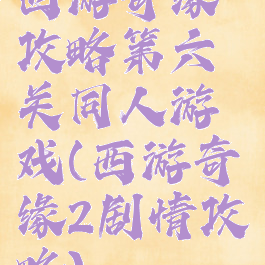 西游奇缘
攻略第六
关同人游
戏(西游奇
缘2剧情攻
略)